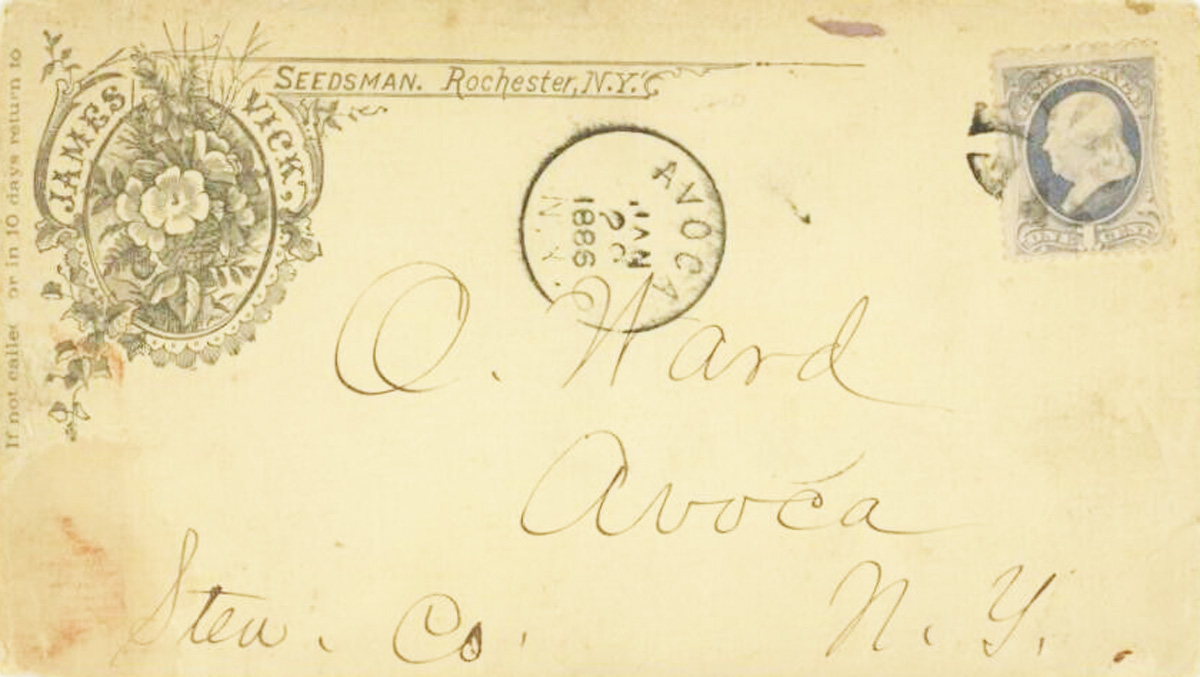 If not called or in 10 days return to
JAMES VICK,
SEEDSMAN. Rochester, N.Y.
AVOCA
JAN
1886
N.Y.
O. Ward
Avoca
Steu. Co. N. Y.